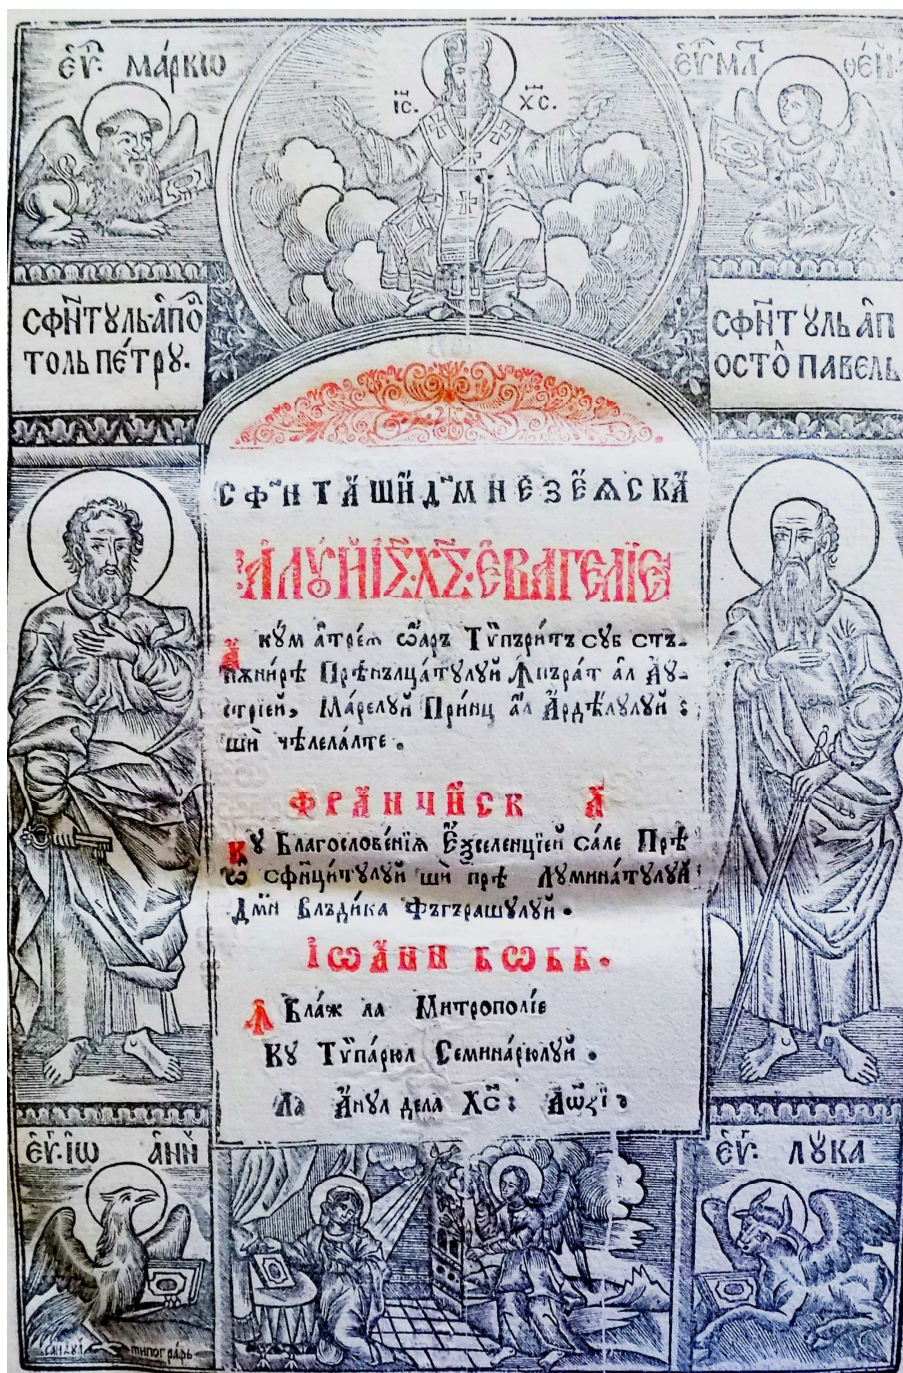 ЕѴ҃. МА́РКꙋ
І҃С. Х҃С.
ЕѴ҃ МАТ ѲЕ́Й
СФН҃ТУЛЬ А҆ПО҃
ТОЛЬ ПЕ́ТРУ.
СФН҃ТУЛЬ А҆П
ОСТО҃ ПАВЕЛЬ
СФ꙽НТА̑ ШИ̑ Д꙽МНЕЗЕ̑ЯСКА̑
А҆ЛУЙ І҃С. Х҃С. Е҆ВА́ГГЕЛЇЕ
А҆кꙋ́м а҆тре́ѧ ѡ҆аръ Ти҆пъри́тъ суб стъ-
пѫни́рѣ Прѣнълца́тулуй Ꙟпъра́т а҆л Аꙋ-
стрїей, Ма́релуй Принц а҆л А҆рдѣ́лулуй :
ши҆ чѣлела́лте .
ФРА́НЧИ́СК А҃
Кꙋ Благослове́нїѧ Е҆ѯеленцїей са́ле Прѣ
ѡ҆ сфи҆нци́тулуй ши҆ прѣ Лумина́тулуй
Дм҃н Влъди́ка Фъгърашулуй .
І҆Ѡ҆А́НН БѠББ.
Ꙟ Бла́ж ла Митропо́лїе
Кꙋ Ти҆па́рюл Семина́рюлуй .
Ла А҆нул дела Хс҃ : АѠЗІ .
ЕѴ҃. І҆Ѡ А҆НН
ЕѴ҃. ЛУКА
САНДУЛ ТИПОГРА́ФЬ